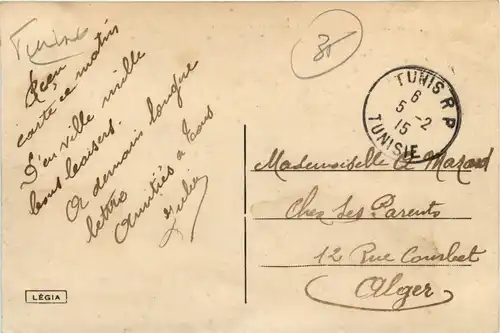 Reçu
carte ce matin
D'en ville mille
bons baisers.
A demain longue
lettre
Amitiés à tous
Julien
LÉGIA
35
TUNIS R P
6
5 -2
15
TUNISIE
Mademoiselle A
Chez Ses Parents
12 Rue Courbet
Alger